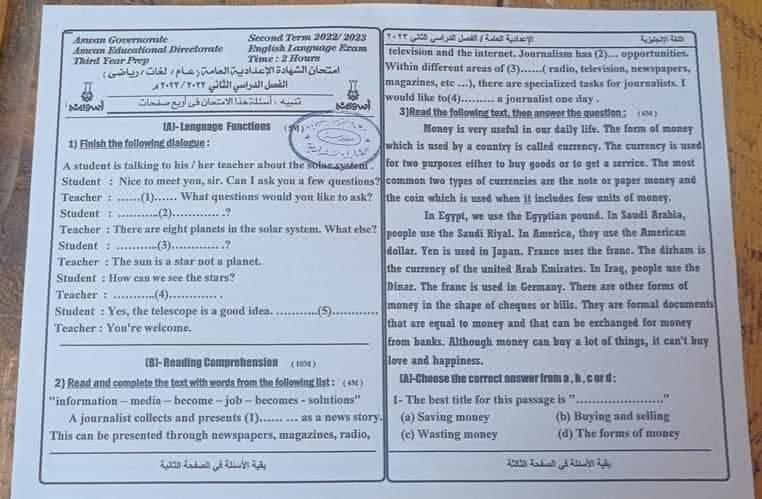 Aswan Governorate
Second Term 2022/ 2023
Aswan Educational Directorate
English Language Exam
Third Year Prep
Time : 2 Hours
امتحان الشهادة الإعدادية العامة
الفصل الدراسي الثاني ٢٠٢٢ / ٢٠٢٣ م
تنبيه : أسئلة هذا الامتحان في أربع صفحات
(A)- Language Functions (5M)
1) Finish the following dialogue :
A student is talking to his / her teacher about the solar system .
Student : Nice to meet you, sir. Can I ask you a few questions?
Teacher : ……(1)…… What questions would you like to ask?
Student : ………..(2)………….. .?
Teacher : There are eight planets in the solar system. What else?
Student : ………..(3)………….. .?
Teacher : The sun is a star not a planet.
Student : How can we see the stars?
Teacher : ………..(4)………….. .
Student : Yes, the telescope is a good idea. ………..(5)…………
Teacher : You're welcome.
(B)- Reading Comprehension (10M)
2) Read and complete the text with words from the following list : (4M)
"information – media – become – job – becomes - solutions"
A journalist collects and presents (1)…….. … as a news story.
This can be presented through newspapers, magazines, radio,
بقية الأسئلة في الصفحة الثانية
اللغة الإنجليزية
الإعدادية العامة / الفصل الدراسي الثاني ٢٠٢٣
television and the internet. Journalism has (2)… opportunities.
Within different areas of (3)……( radio, television, newspapers,
magazines, etc …), there are specialized tasks for journalists. I
would like to(4)………. a journalist one day .
3)Read the following text, then answer the question : (6M)
Money is very useful in our daily life. The form of money
which is used by a country is called currency. The currency is used
for two purposes either to buy goods or to get a service. The most
common two types of currencies are the note or paper money and
the coin which is used when it includes few units of money.
In Egypt, we use the Egyptian pound. In Saudi Arabia,
people use the Saudi Riyal. In America, they use the American
dollar. Yen is used in Japan. France uses the franc. The dirham is
the currency of the united Arab Emirates. In Iraq, people use the
Dinar. The franc is used in Germany. There are other forms of
money in the shape of cheques or bills. They are formal documents
that are equal to money and that can be exchanged for money
from banks. Although money can buy a lot of things, it can't buy
love and happiness.
(A)-Choose the correct answer from a , b , c or d :
1- The best title for this passage is "…………………."
(a) Saving money
(b) Buying and selling
(c) Wasting money
(d) The forms of money
بقية الأسئلة في الصفحة الثالثة